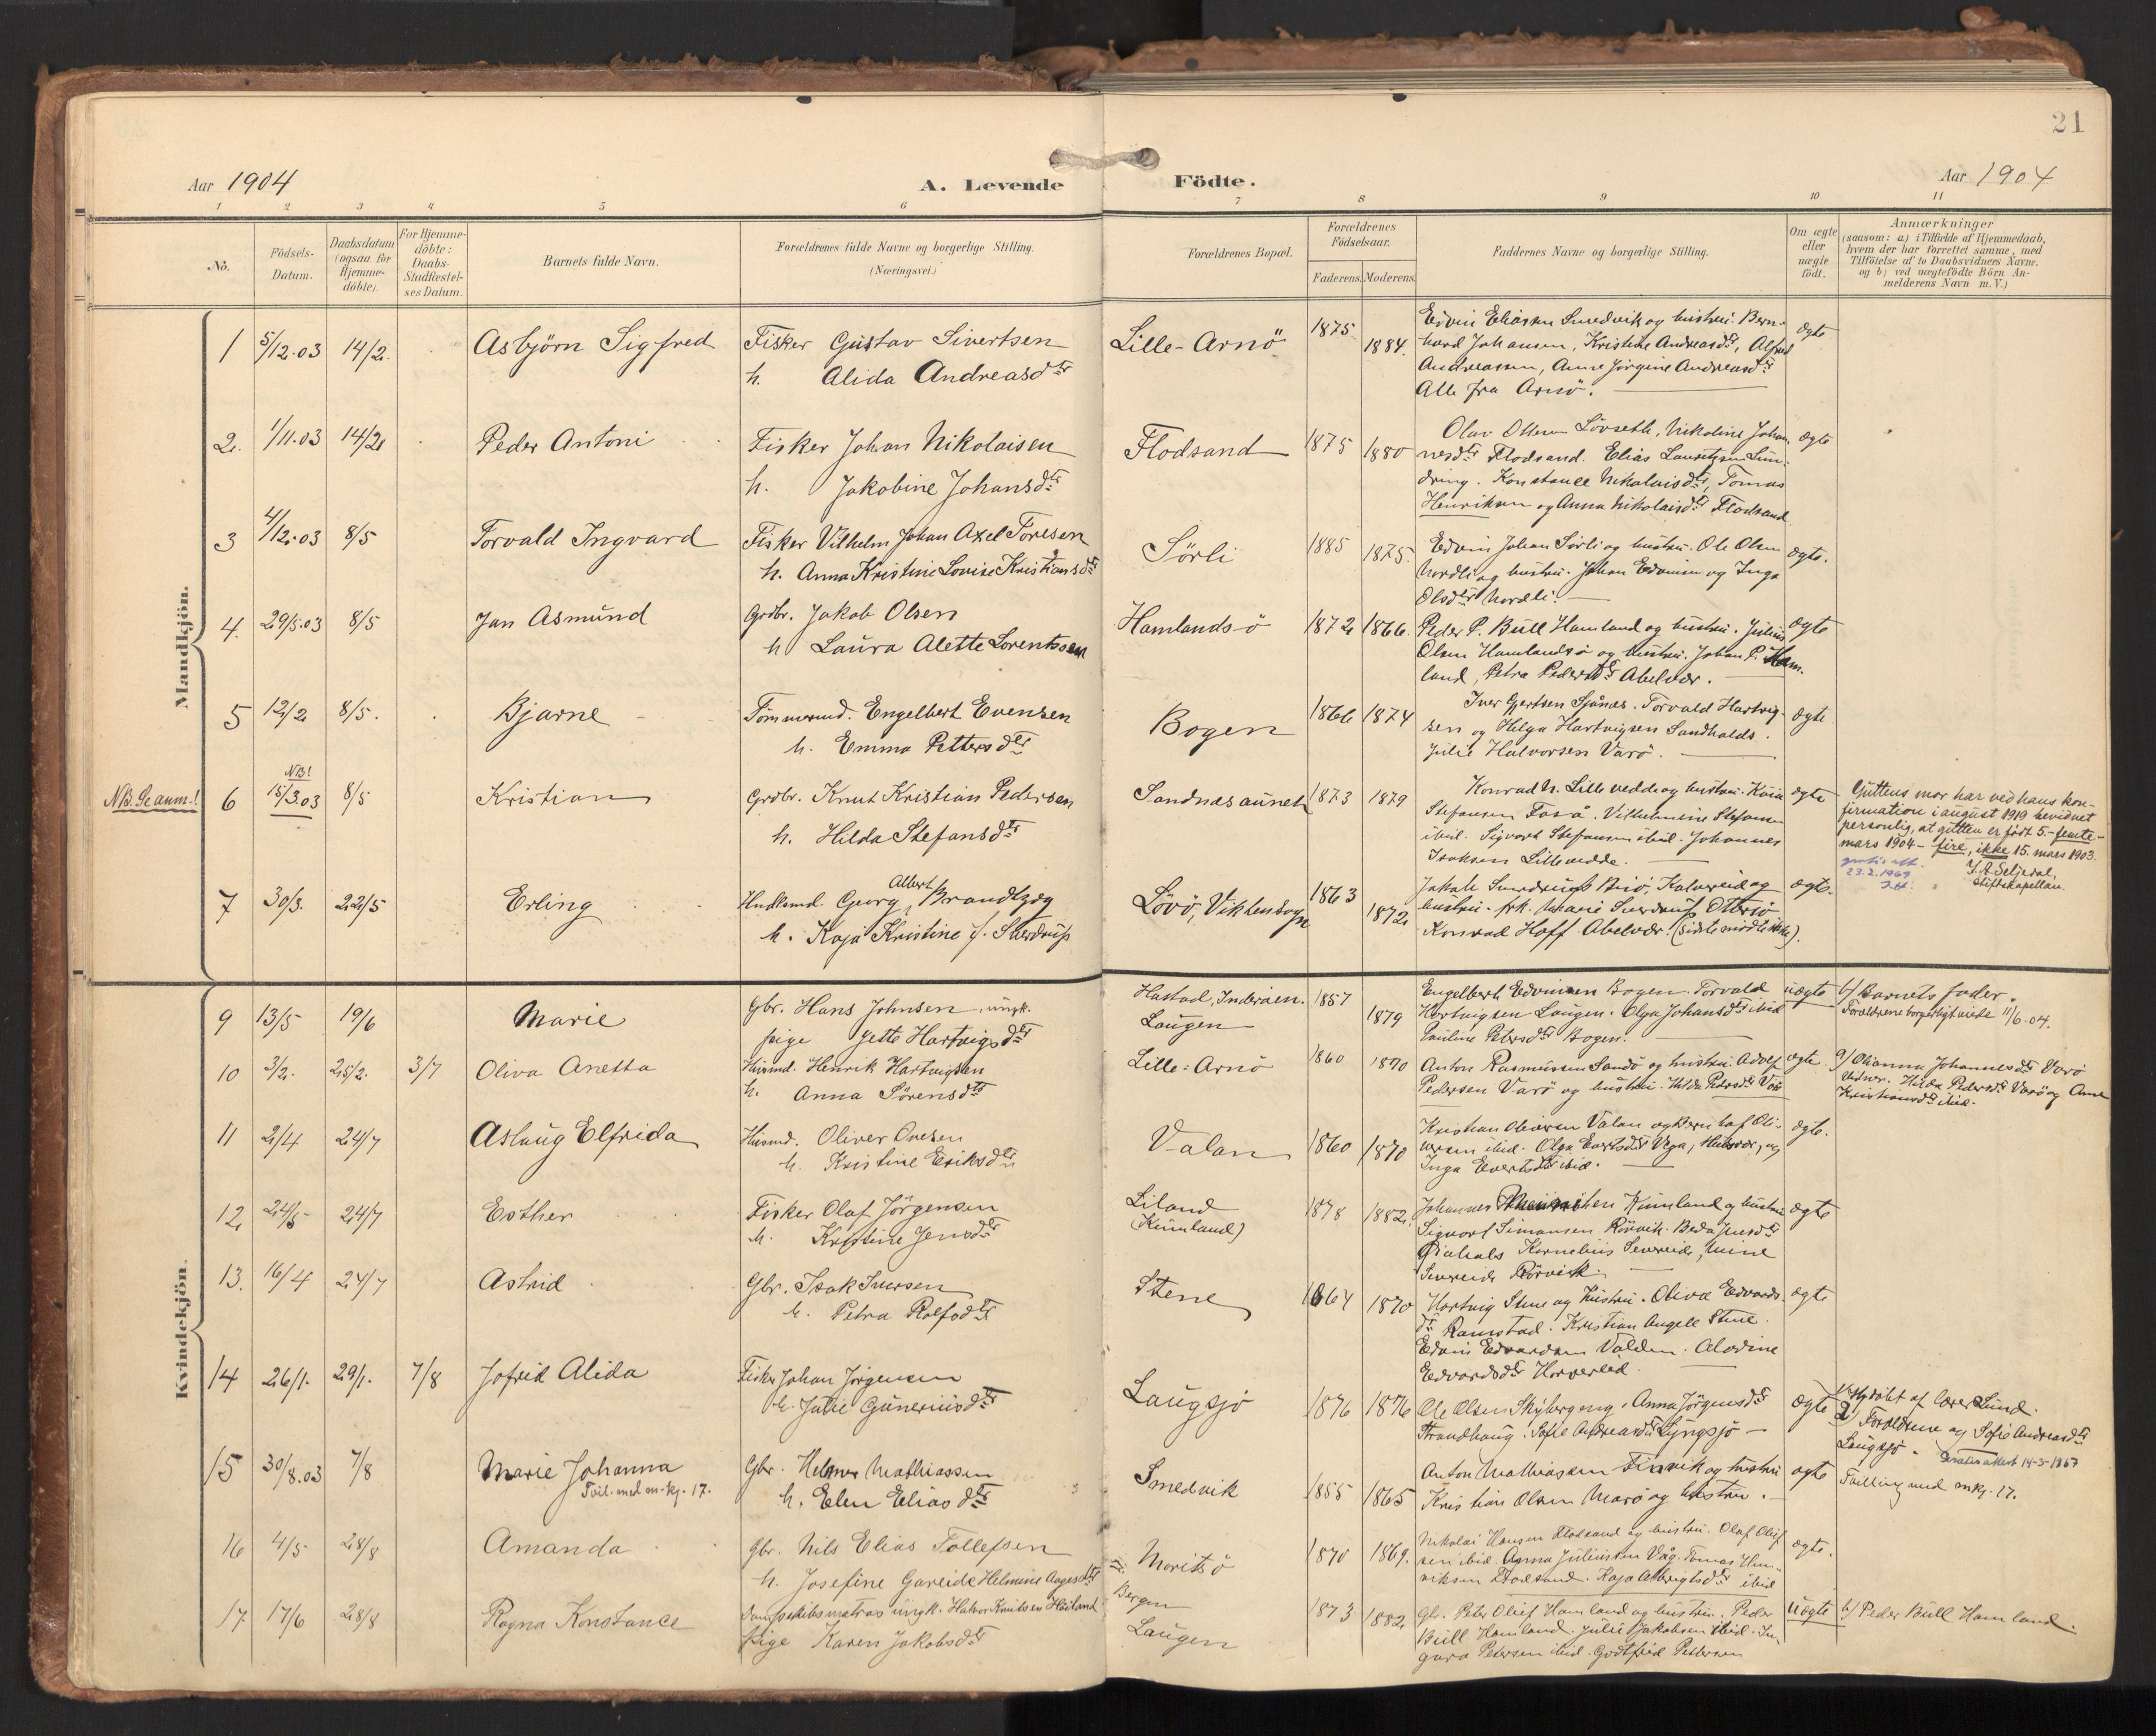 21
Aar 1904
A. Levende Födte.
Aar 1904
1 2 3 4 5 6 7 8 9 10 11
No.
Födsels-Datum.
Daabsdatum (ogsaa for Hjemme-döbte).
For Hjemme-döbte: Daabs-Stadfæstel-ses Datum.
Barnets fulde Navn.
Forældrenes fulde Navne og borgerlige Stilling. (Næringsvei.)
Forældrenes Bopæl.
Forældrenes Födselsaar.
Faderens. Moderens.
Faddernes Navne og borgerlige Stilling.
Om ægte eller uægte födt.
Anmærkninger
(saasom: a) i Tilfælde af Hjemmedaab,
hvem der har forrettet samme, med
Tilföielse af to Daabsvidners Navne.
og b) ved uægtefödte Börn An-
melderens Navn m. V.)
Mandkjön.
1 5/12.03 14/2. Asbjörn Sigfred
Fisker Gustav Sivertsen
h. Alida Andreasdtr
Lille-Arnö 1875 1884.
Edvin Eliassen Smedvik og hustru. Bern-
hard Johansen, Kristine Andreasdtr, Alfred
Andreassen, Anne Jörgine Andreasdtr
Alle fra Arnö.
ægte
2. 1/11.03 14/2 Peder Antoni
Fisker Johan Nikolaisen
h. Jakobine Johansdtr
Flodsand 1875 1880
Olav Ottesen Lövseth, Nikoline Johan
nesdtr Flodsand. Elias Lauritzsen Sun-
dring. Konstance Nikolaisdtr, Tomas
Henriksen og Anna Nikolaisdtr Flodsand
ægte
3 4/12.03 8/5 Torvald Ingvard
Fisker Vilhelm Johan Axel Toresen
h. Anna Kristine Lovise Kristiansdtr
Sörli 1885 1875.
Edvin Johan Sörli og hustru. Ole Olsen
Nordli og hustru. Johan Edvinsen og Inga
Olsdtr Nordli.
ægte.
4. 29/5.03 8/5 Jan Asmund
Grdbr. Jakob Olsen
h Laura Alette Lorentssen
Hamlandsö 1872 1866.
Peder P. Bull Hamland og hustru. Julius
Olsen Hamlandsö og hustru. Johan P. Ham-
land, Petra Pedersdtr Abelvær.
ægte
5 12/2 8/5. Bjarne
Tömmermd. Engelbert Evensen
h. Emma Pettersdtr
Bogen 1866 1874
Iver Gjertsen Sjönæs. Torvald Hartvig-
sen og Helga Hartvigsen Sandhalds.
Julie Halvorsen Varö.
ægte
NB. Se anm.! 6 NB! 15/3.03 8/5 Kristian
Grdbr. Knut Kristian Pedersen
h. Hilda Stefansdtr
Sandnæsaunet 1873 1879
Konrad N. Lillevedde og hustru. Kaia
Stefansen Fosaa. Vilhelmine Stefansen
ibid. Sigvart Stefansen ibid. Johannes
Isaksen Lillevedde.
ægte
Guttens mor har ved hans kon-
firmation i august 1919 bevidnet
personlig, at gutten er født 5.-femte-
mars 1904-fire, ikke 15. mars 1903.
J. A. Seljedal,
Stiftskapellan.
gratis att.
23.2.1969
7 30/3. 22/5 Erling
Hndlsmd. Georg Albert Brandtzæg
h. Kaja Kristine f. Sverdrup
Lövö, Viktenbogn 1863 1872
Jakob Sverdrup Buö, Kalvereid og
hustru. frk. Marie Sverdrup Ottersö
Konrad Hoff Abelvær. (sidste mödte ikke).
ægte.
Kvindekjön.
9 13/5 19/6 Marie
Gbr. Hans Johnsen, ungk.
pige Jette Hartvigsdtr
Hastad, Inderöen.
Laugen 1857 1879
Engelbert Edvinsen Bogen. Torvald
Hartvigsen Laugen. Olga Johansdtr ibid
Pauline Petersdtr Bogen.
uægte
b/ Barnets fader.
Forældrene borgerligt viede 11/6.04.
10 3/2. 25/2. 3/7 Oliva Anetta
Husmd. Henrik Hartvigsen
h. Anna Sörensdtr
Lille-Arnö 1860 1870
Anton Rasmussen Sandö og hustru. Adolf
Pedersen Varö og hustru. Hilda Pedersdtr Varö
ægte.
a/ Olianna Johannesdtr Varö
Vidner. Hilda Pedersdtr Varö og Anne
Kristiansdtr ibid.
11 2/4 24/7 Aslaug Elfrida
Husmd. Oliver Ovesen
h. Kristine Eriksdtr
Valan 1860 1870
Kristian Oliversen Valan og Bernhof Oli-
versen ibid. Olga Evertsdtr Vega, og
Inga Evertsdtr ibid.
ægte.
12 24/5 24/7 Esther
Fisker Olaf Jörgensen
h. Kristine Jensdtr
Liland
(Kumland) 1878 1882.
Johannes Kumland og hustru
Sigvart Simonsen Rörvik. Beda Jensdtr
Kornelius Severeide, Mine
Severeide Rörvik.
ægte
13. 16/4 24/7 Astrid
Gbr. Isak Iversen
h. Petra Rolfsdtr
Stene 1864 1870
Hartvig Stene og hustru. Oliva Edvards
dtr Ramstad. Kristian Angell Stene.
Edvin Edvardsen Valden. Alvdine
Edvardsdtr Horvereid.
ægte
14 26/1. 29/1. 7/8 Jofrid Alida
Fisker Johan Jörgensen
h. Julie Guneriusdtr
Laugsjö 1876 1876
Ole Olsen Skybergeng. Anna Jörgensdtr
Strandhaug. Sofie Andreasdtr Lyngsjö
ægte
Hjdöbt af lærer Lund.
2/ Forældrene og Sofie Andreasdtr
Laugsjö. Gratis attest 14-3-1967
15 30/8.03 7/8 Marie Johanna
Tvil. med m.kj. 17.
Gbr. Helmer Mathiassen
h. Elen Eliasdtr
Smedvik 1855 1865
Anton Mathiassen Finvik og hustru
Kristian Olsen Marö og hustru.
ægte
Tvilling med mkj. 17.
16 4/5 28/8 Amanda
Gbr. Nils Elias Tollefsen
h. Josefine Gareide Helmine Aagesdtr
Moritsö 1870 1869.
Nikolai Hansen Flodsand og hustru. Olaf Oluf
sen ibid Anna Juliussen Våg. Tomas Hen-
riksen Flodsand. Kaja Albrigtsdtr ibid
ægte.
17 17/6 28/8 Ragna Konstance
Dampskibsmatros ungk. Halvor Knutsen Höiland
pige Karen Jakobsdtr
Bergen
Laugen 1873 1882
Gbr. Peter Oluf Hamland og hustru. Peder
Bull Hamland. Julie Jakobsen ibid. In-
gvara Petersen ibid. Godtfred Pettersen
uægte
b/ Peder Bull Hamland.